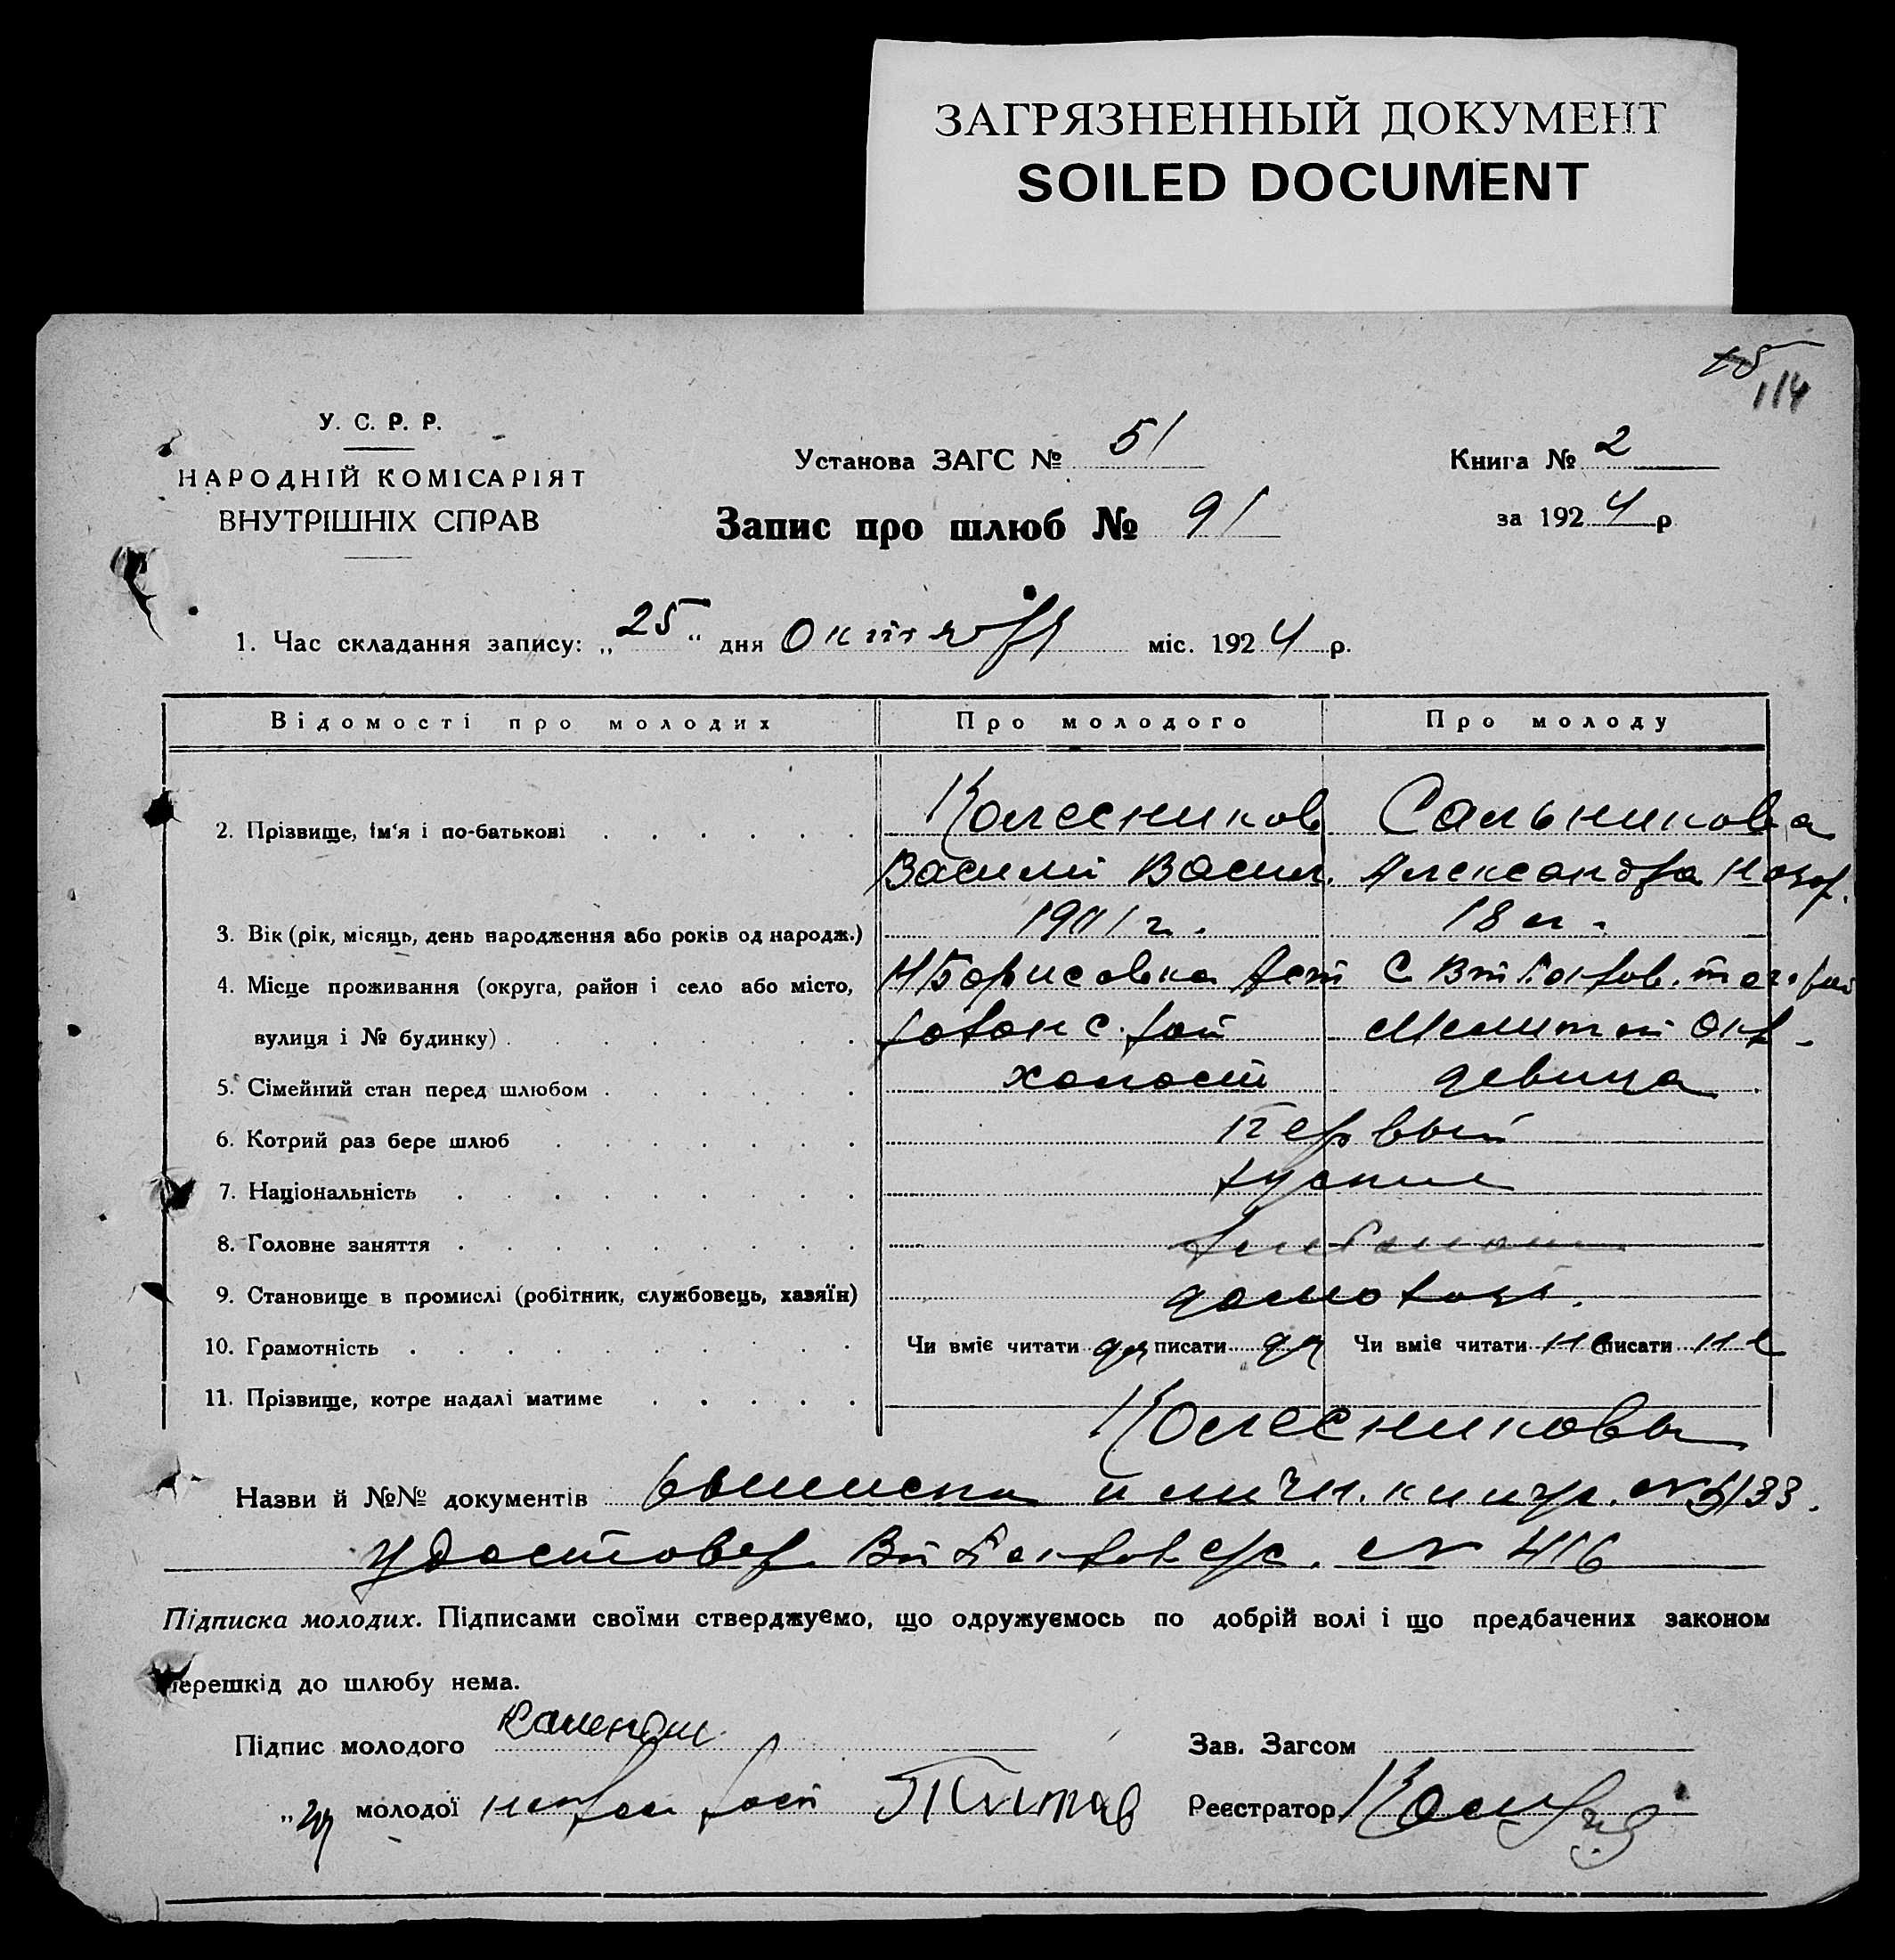 ЗАГРЯЗНЕННЫЙ ДОКУМЕНТ
SOILED DOCUMENT
114
У. С. Р. Р.
НАРОДНІЙ КОМІСАРІЯТ
ВНУТРІШНІХ СПРАВ
Установа ЗАГС № 51
Книга № 2
Запис про шлюб № 91
за 1924 р
1. Час складання запису: „25“ дня Октября міс. 1924 р.
Відомості про молодих Про молодого Про молоду
2. Прізвище, ім'я і по-батькові . . . . . . Колесников Сальникова
Василий Васил. Александра Назар.
3. Вік (рік, місяць, день народження або років од народж.) 1901 г. 18 л.
4. Місце проживання (округа, район і село або місто, Н Борисовка С.
вулиця і № будинку) . . . . . . . рай Мелит Окр.
5. Сімейний стан перед шлюбом . . . . . . холост девица
6. Котрий раз бере шлюб . . . . . . . Первый
7. Національність . . . . . . . . . русские
8. Головне заняття . . . . . . . . .
9. Становище в промислі (робітник, службовець, хазяїн) домохоз.
10. Грамотність . . . . . . . . . . Чи вміє читати да писати да Чи вміє читати не писати не
11. Прізвище, котре надалі матиме . . . . . Колесниковы
Назви й №№ документів выписка книги. №
удостовер. № 416
Підписка молодих. Підписами своїми стверджуємо, що одружуємось по добрій волі і що предбачених законом
перешкід до шлюбу нема.
Підпис молодого
Зав. Загсом
„ молодої неграм рост Титов
Реєстратор